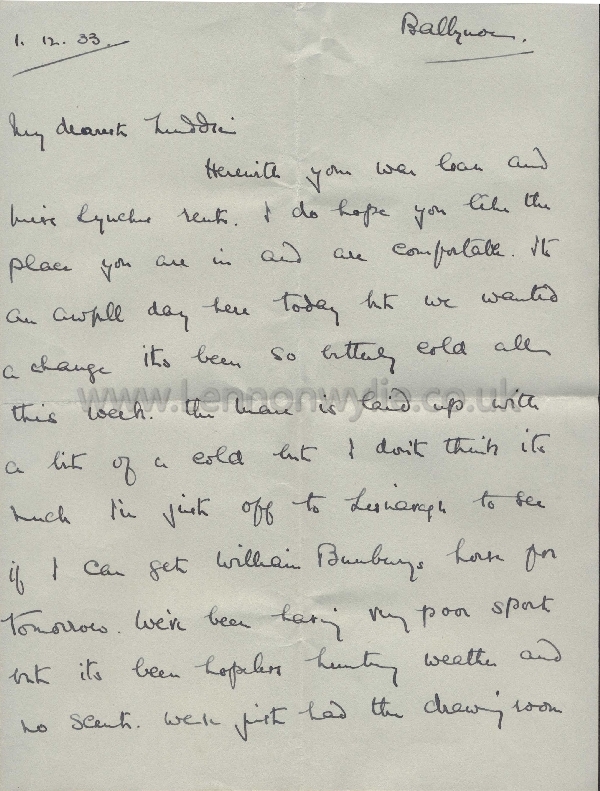 Ballynoe.
1. 12. 33.
My dearest
Herewith your war loan and
Miss Lynchs rent. I do hope you like the
place you are in and are comfortable. Its
an awfull day here today but we wanted
a change its been so bitterly cold all
www.Lennonwylie.co.uk
this week. The mare is laid up with
a bit of a cold but I don't think its
much I'm just off to Lisnavagh to see
if I can get William Bunburys horse for
tomorrow. We've been having very poor sport
but its been hopeless hunting weather and
no scent. We've just had the drawing room